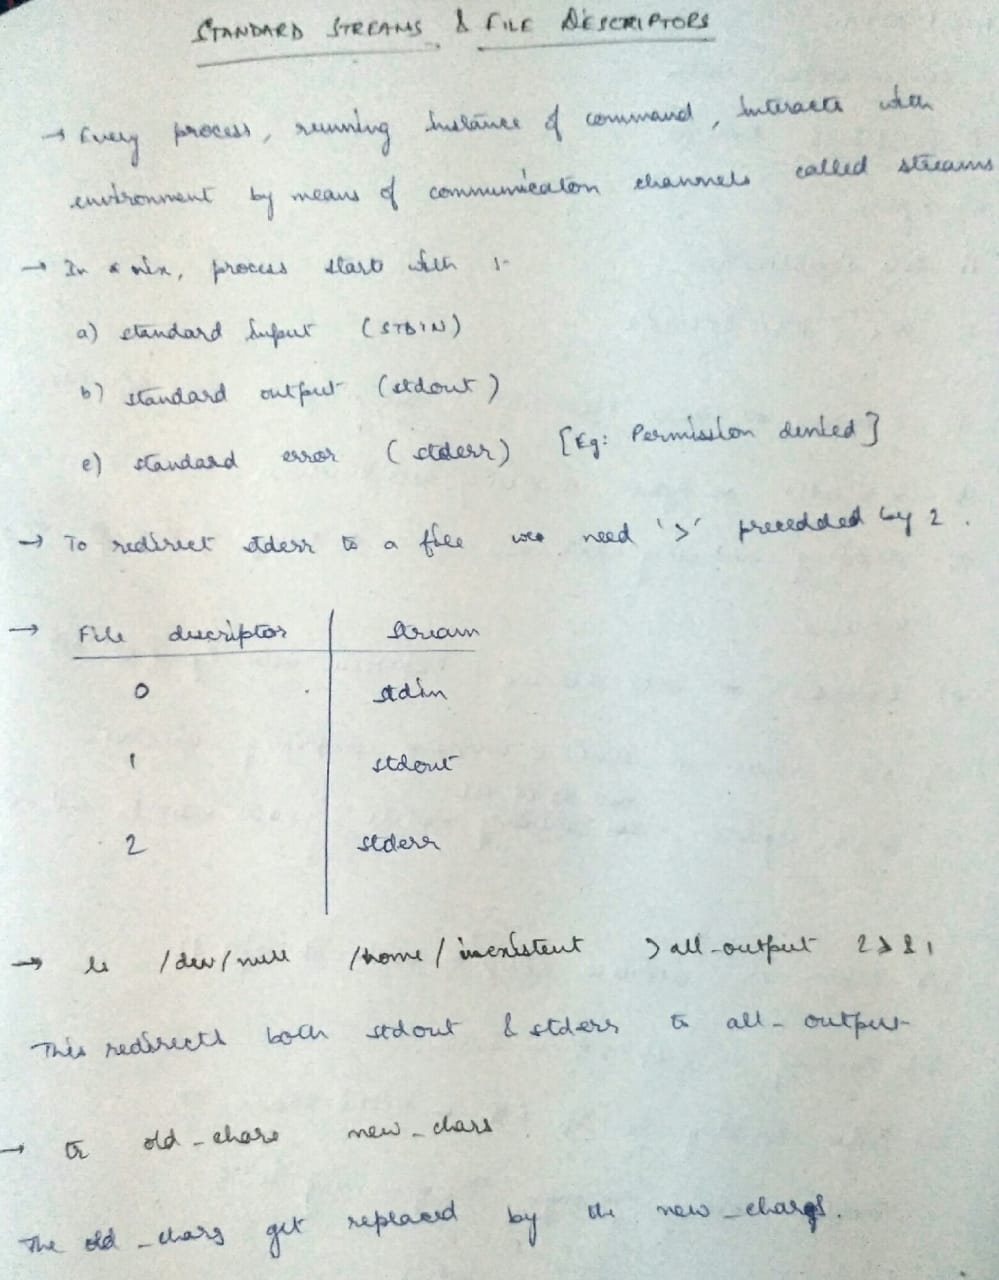 STANDARD STREAMS & FILE DESCRIPTORS
→ Every process, running instance of command, interacts with
environment by means of communicaton channels called streams
→ In *nix, process starts with :-
a) standard Input (STDIN)
b) standard output (stdout)
c) standard error (stderr) [Eg: Permission denied]
→ To redirect stderr to a file we need '>' precedded by 2.
→ File descriptor | Stream
0 | stdin
1 | stdout
2 | stderr
→ ls /dev/null /home/inexistent > all-output 2>&1
This redirects both stdout & stderr to all-output
→ tr old_chars new_chars
The old_chars get replaced by the new_chars.